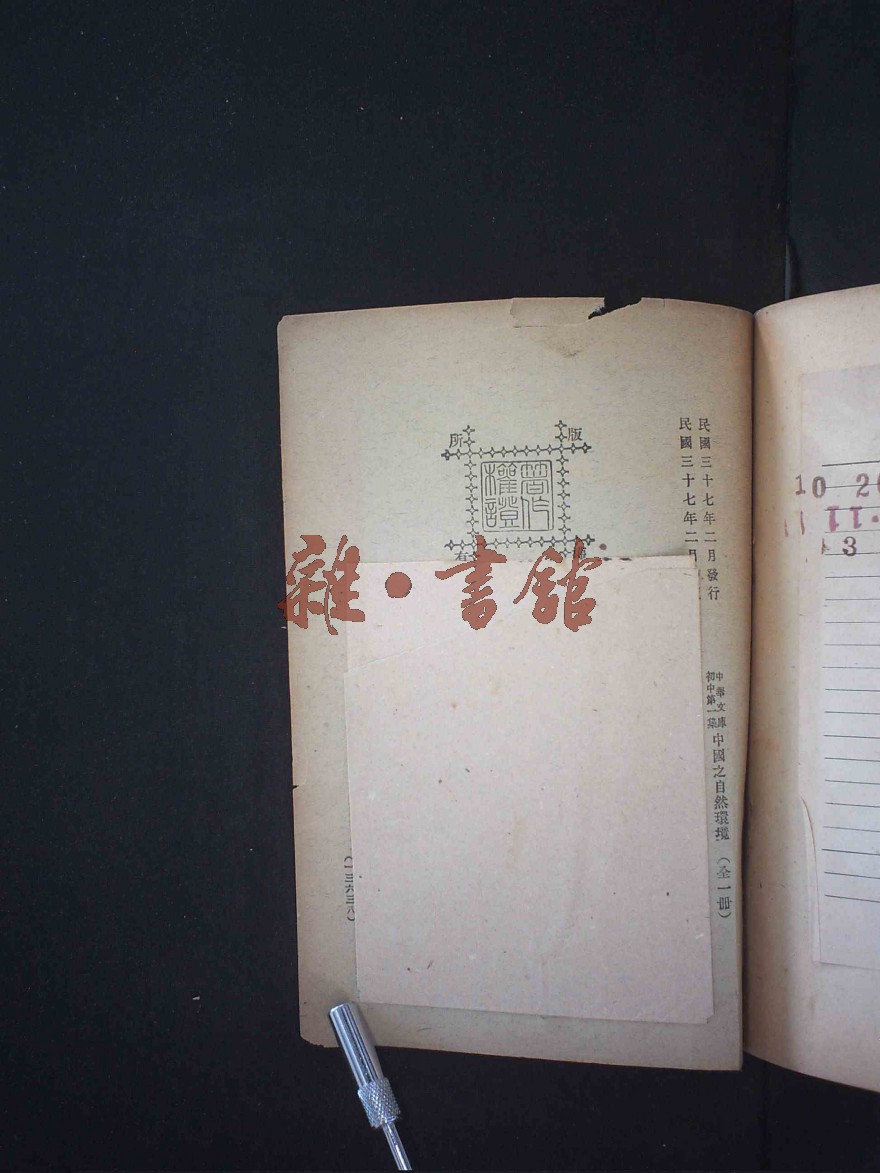 民國三十七年二月發行
民國三十七年二月
中華文庫
初中第一集
中國之自然環境（全一冊）
版
所
有
著作
權證
（一三六三八）
雜·書館
10 20
11
3